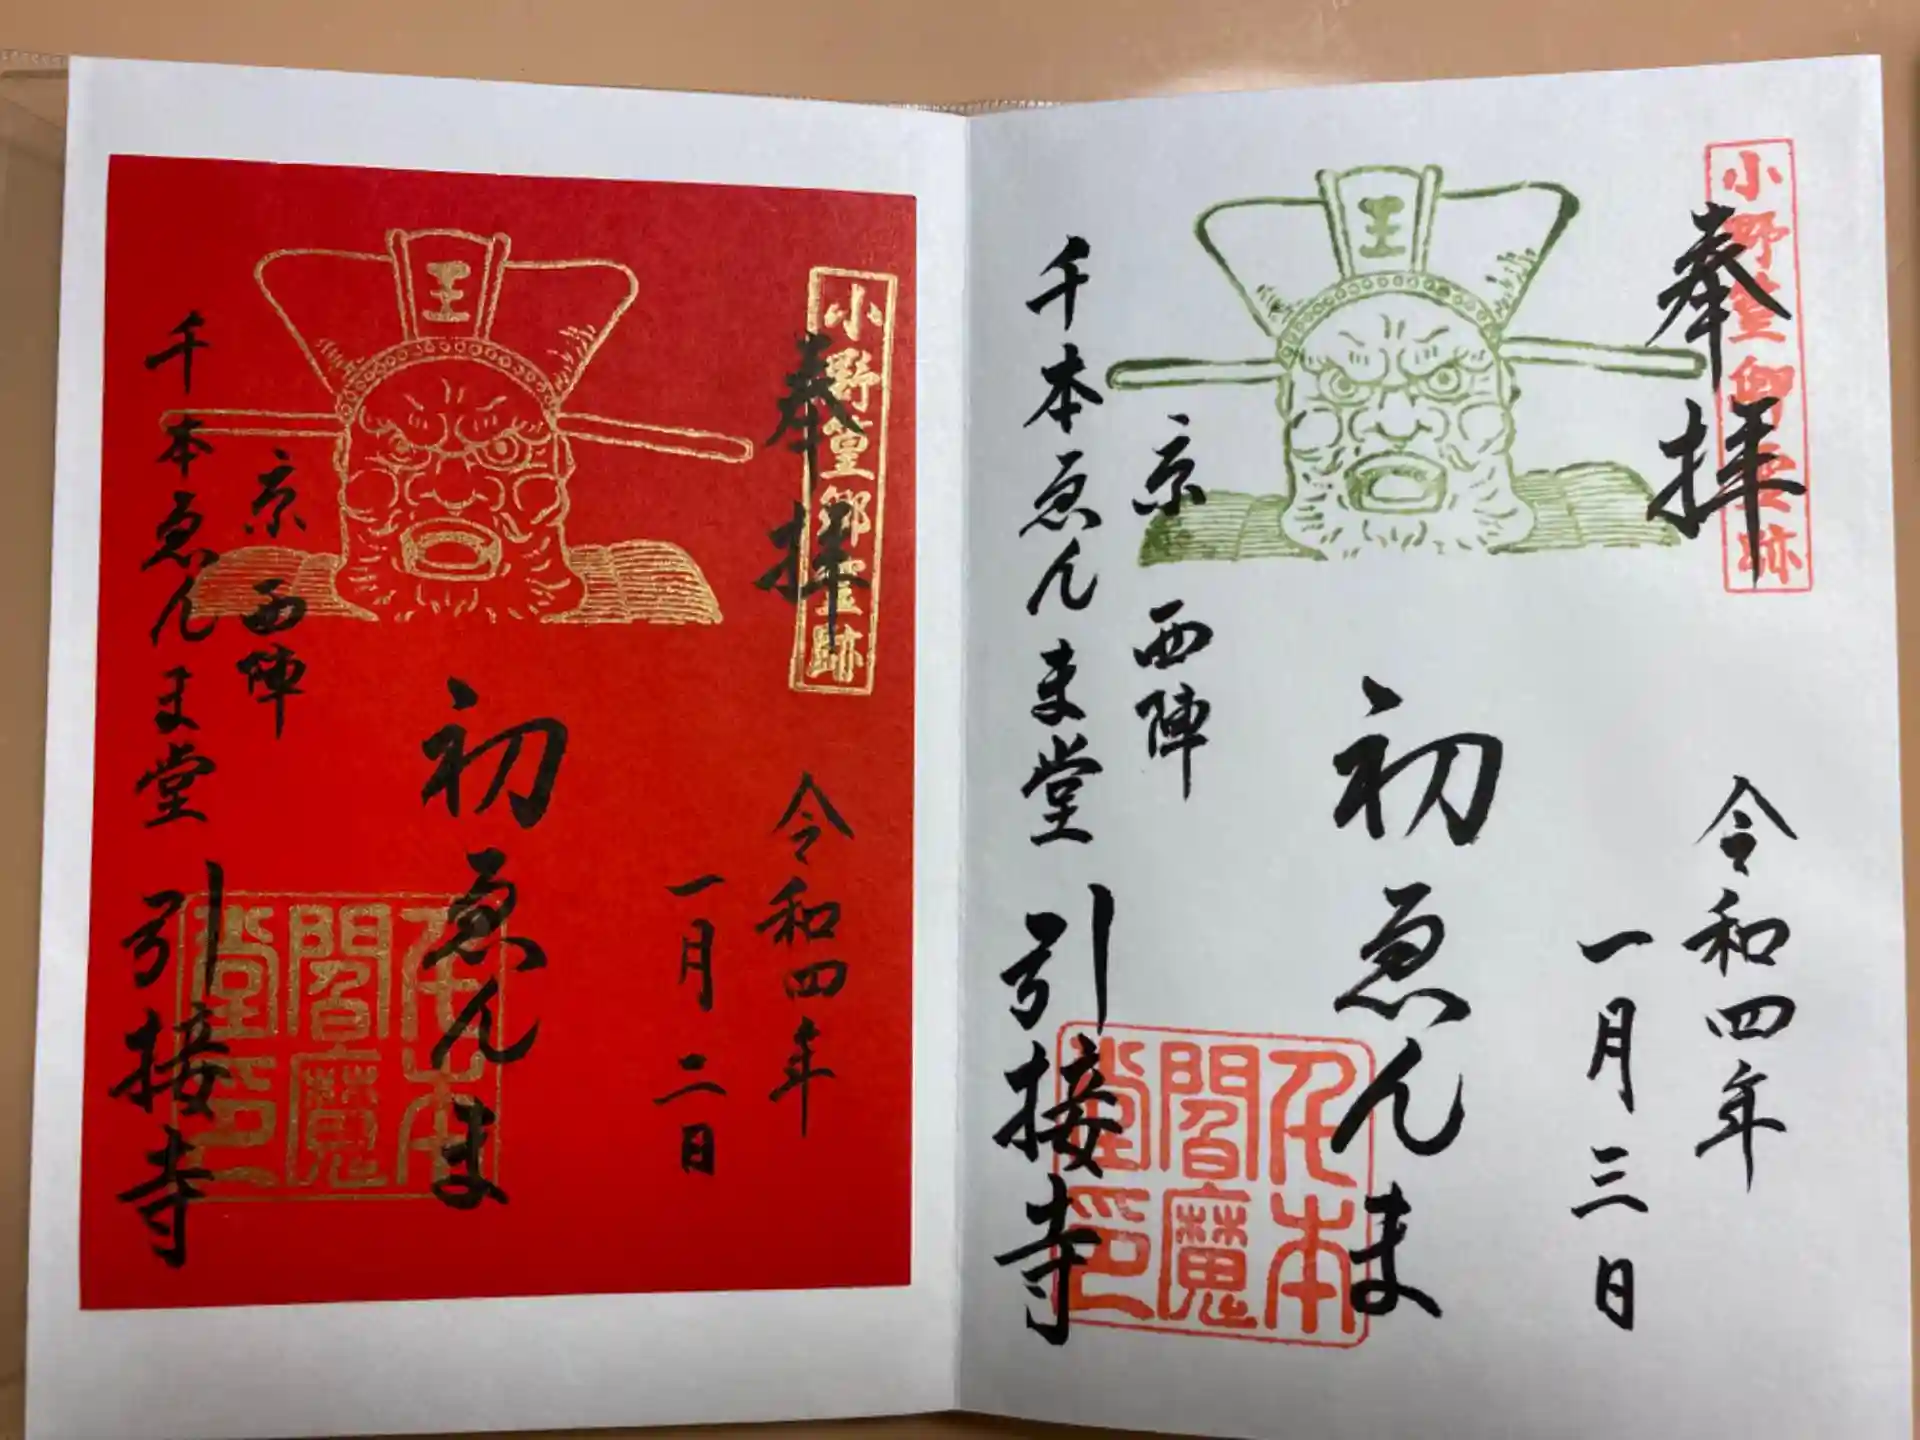 王
小野篁卿霊跡
奉拝
令和四年
一月二日
初ゑんま
京 西陣
千本ゑんま堂 引接寺
千本閻魔堂印
王
小野篁卿霊跡
奉拝
令和四年
一月三日
初ゑんま
京 西陣
千本ゑんま堂 引接寺
千本閻魔堂印